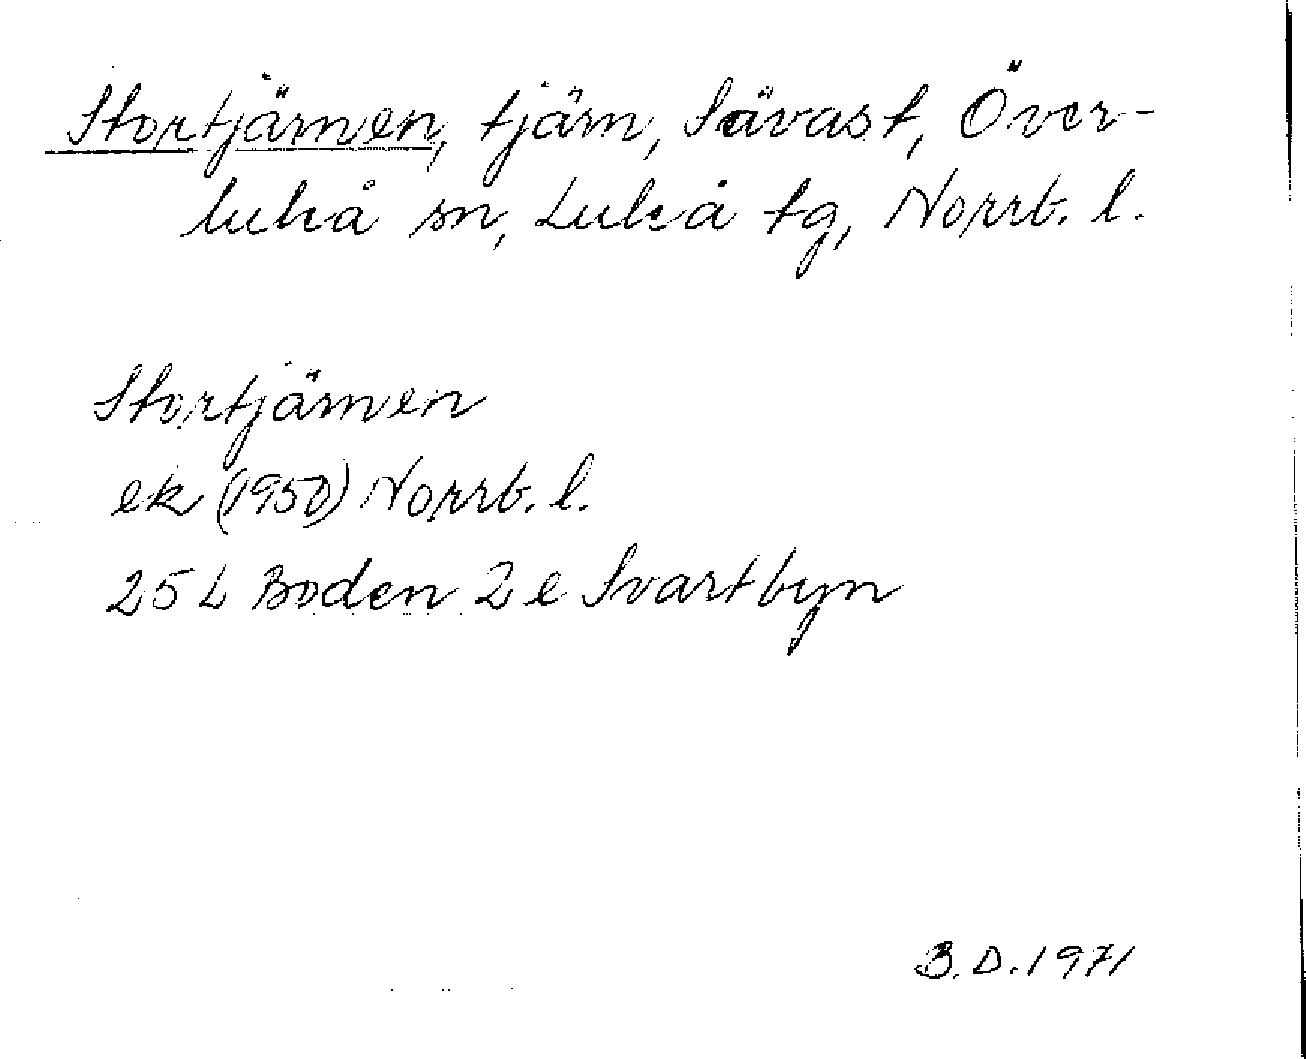 Stortjärnen, tjärn, Sävast, Över-
luleå sn, Luleå tg, Norrb. l.
Stortjärnen
ek (1950) Norrb. l.
25 L Boden 2 e Svartbyn
B.D. 1971